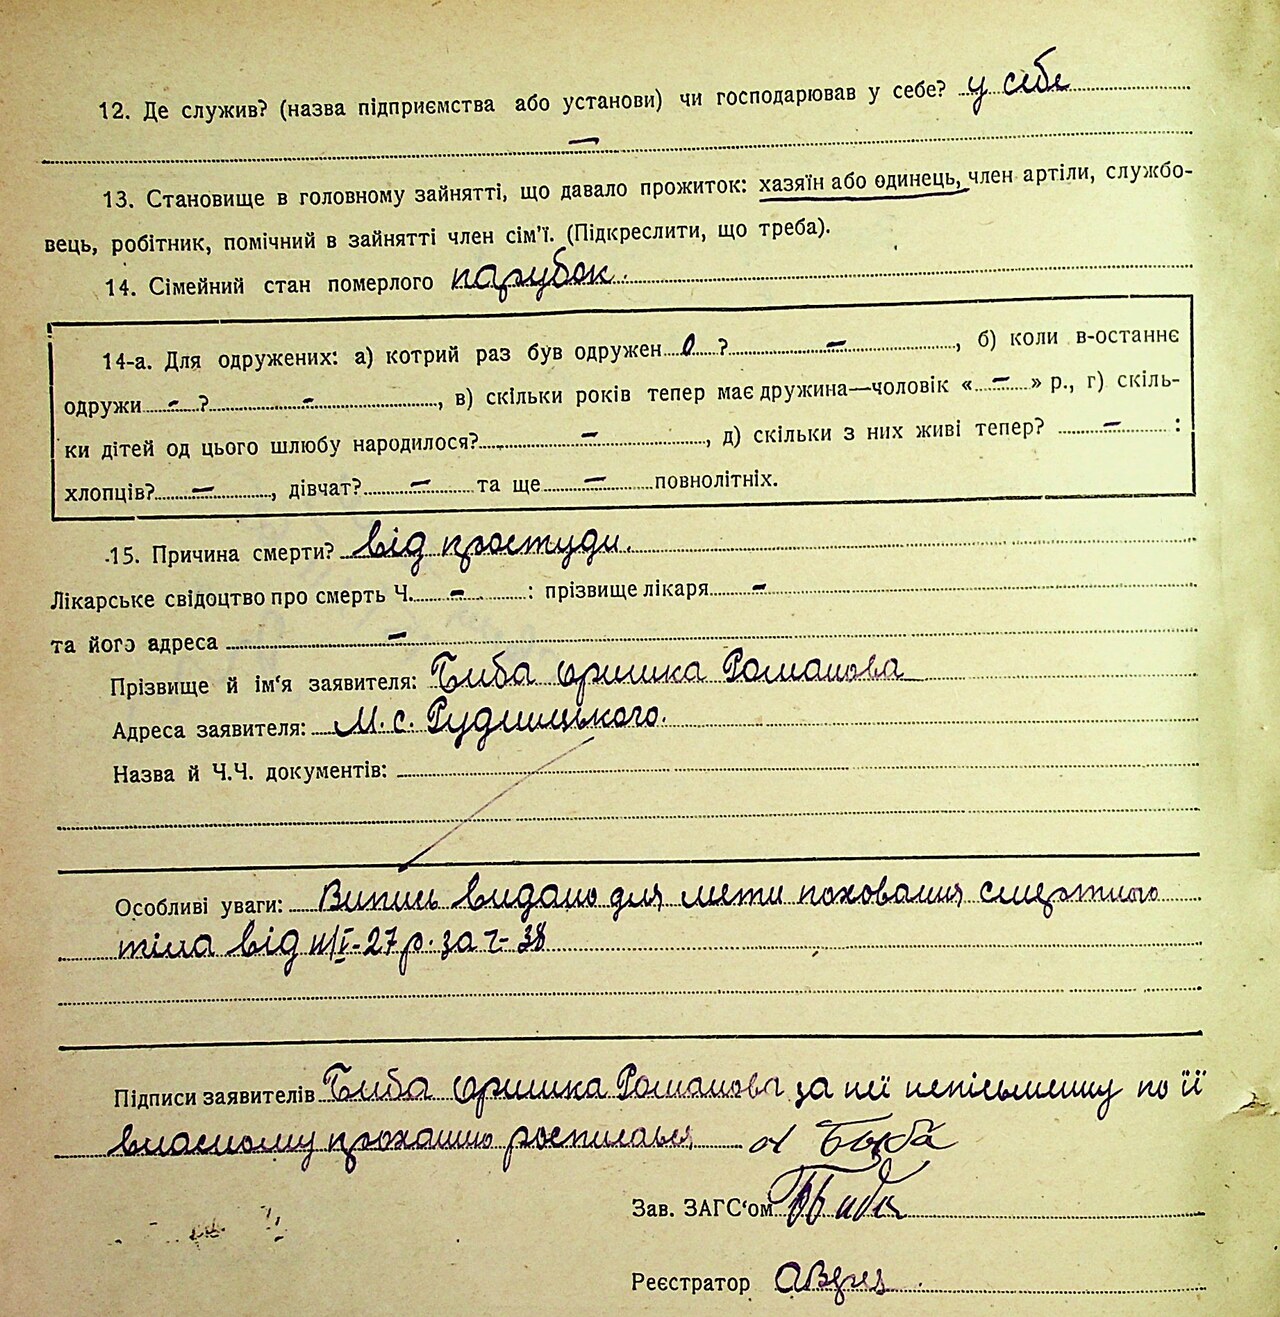 12. Де служив? (назва підприємства або установи) чи господарював у себе? у себе
—
13. Становище в головному зайнятті, що давало прожиток: хазяїн або одинець, член артіли, службо-
вець, робітник, помічний в зайнятті член сім'ї. (Підкреслити, що треба).
14. Сімейний стан померлого парубок.
14-а. Для одружених: а) котрий раз був одружен 0 ? —, б) коли в-останнє
одружи - ? -, в) скільки років тепер має дружина—чоловік « - » р., г) скіль-
ки дітей од цього шлюбу народилося? —, д) скільки з них живі тепер? — :
хлопців? —, дівчат? — та ще — повнолітніх.
15. Причина смерти? від простуди.
Лікарське свідоцтво про смерть Ч. - : прізвище лікаря -
та його адреса —
Прізвище й ім'я заявителя: Биба Оришка Романова
Адреса заявителя: М. с. Рудницького.
Назва й Ч.Ч. документів:
Особливі уваги: Випись видано для мети поховання смертного
тіла від 11/I-27 р. за ч- 38
Підписи заявителів Биба Оришка Романова за неї непісьменну по її
власному проханню росписався Биба
Зав. ЗАГС'ом Биба
Реєстратор